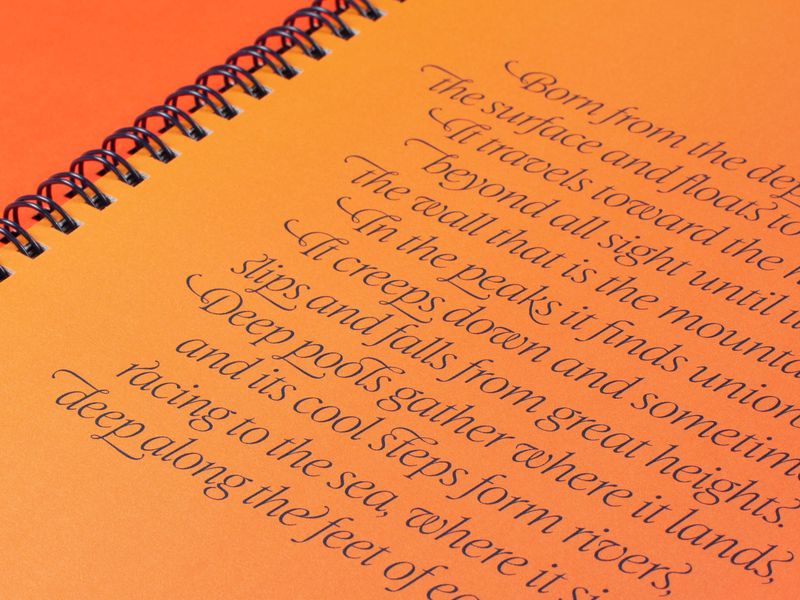 Born from the
the surface and floats to
It travels toward the
beyond all sight until
the wall that is the
In the peaks it finds
It creeps down and
slips and falls from great heights.
Deep pools gather where it lands,
and its cool steps form rivers,
racing to the sea, where it
deep along the feet of